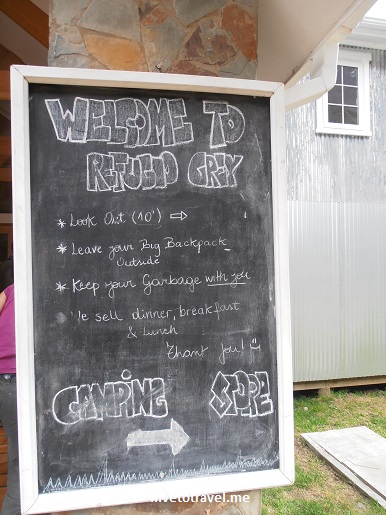 WELCOME TO
REFUGIO GREY
* Look Out (10') ⇨
* Leave your Big Backpack
Outside
* Keep your Garbage with you
We sell dinner, breakfast
& Lunch
Thank you!
CAMPING STORE
livetotravel.me